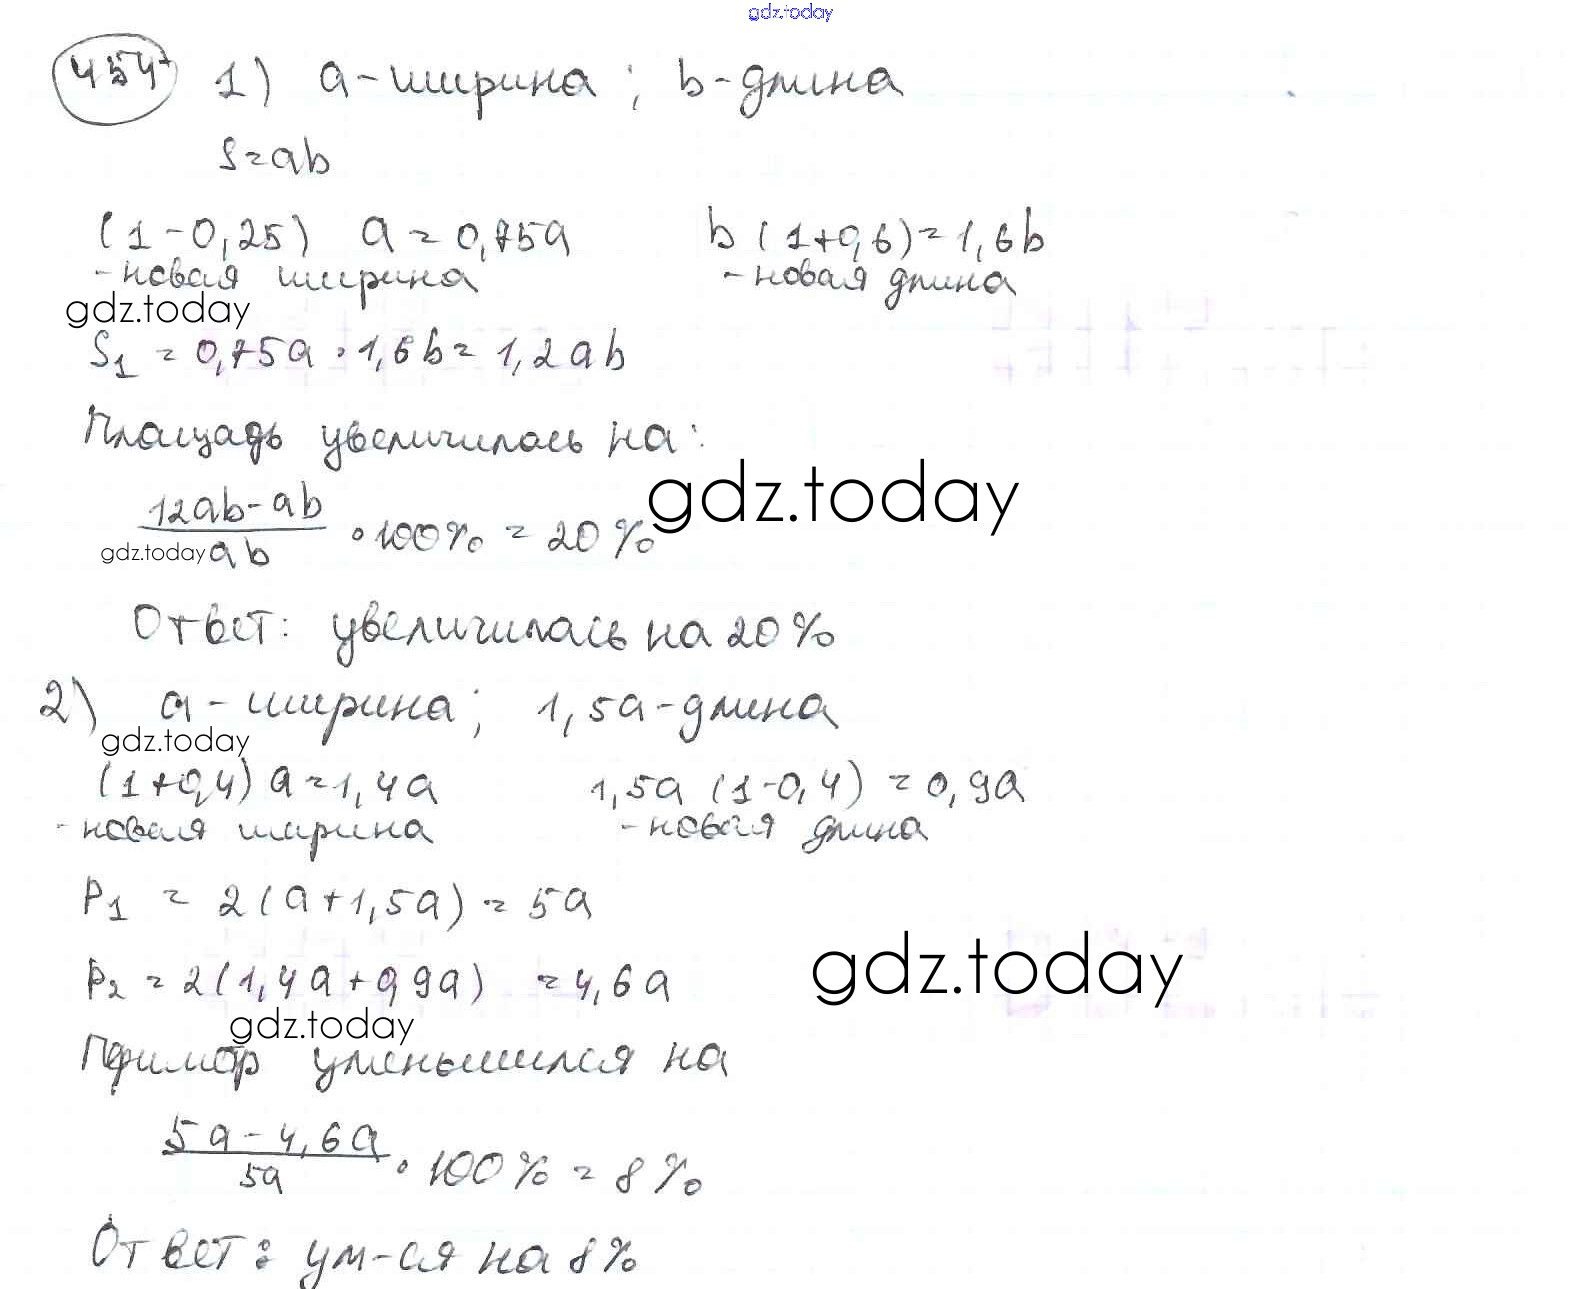 gdz.today
454 1) a - ширина ; b - длина
S = ab
(1 - 0,25) a = 0,75a b (1+0,6) = 1,6b
- новая ширина - новая длина
gdz.today
S1 = 0,75a · 1,6b = 1,2ab
Площадь увеличилась на:
gdz.today
12ab - ab
· 100% = 20%
gdz.today ab
Ответ: увеличилась на 20%
2) a - ширина ; 1,5a - длина
gdz.today
(1+0,4) a = 1,4a 1,5a (1-0,4) = 0,9a
- новая ширина - новая длина
P1 = 2(a+1,5a) = 5a
gdz.today
P2 = 2(1,4a+0,9a) = 4,6a
gdz.today
уменьшился на
5a - 4,6a
5a · 100% = 8%
Ответ: ум-ся на 8%